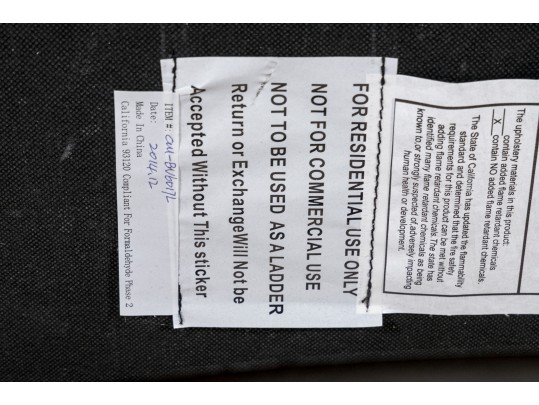 The upholstery materials in this product:
contain added flame retardant chemicals
X contain NO added flame retardant chemicals.
The State of California has updated the flammability
standard and determined that the fire safety
requirements for this product can be met without
adding flame retardant chemicals. The state has
identified many flame retardant chemicals as being
known to, or strongly suspected of, adversely impacting
human health or development.
FOR RESIDENTIAL USE ONLY
NOT FOR COMMERCIAL USE
NOT TO BE USED AS A LADDER
Return or Exchange Will Not be
Accepted Without This sticker
ITEM #:
Date: 2016.12
Made In China
California 93120 Compliant For Formaldehyde Phase 2